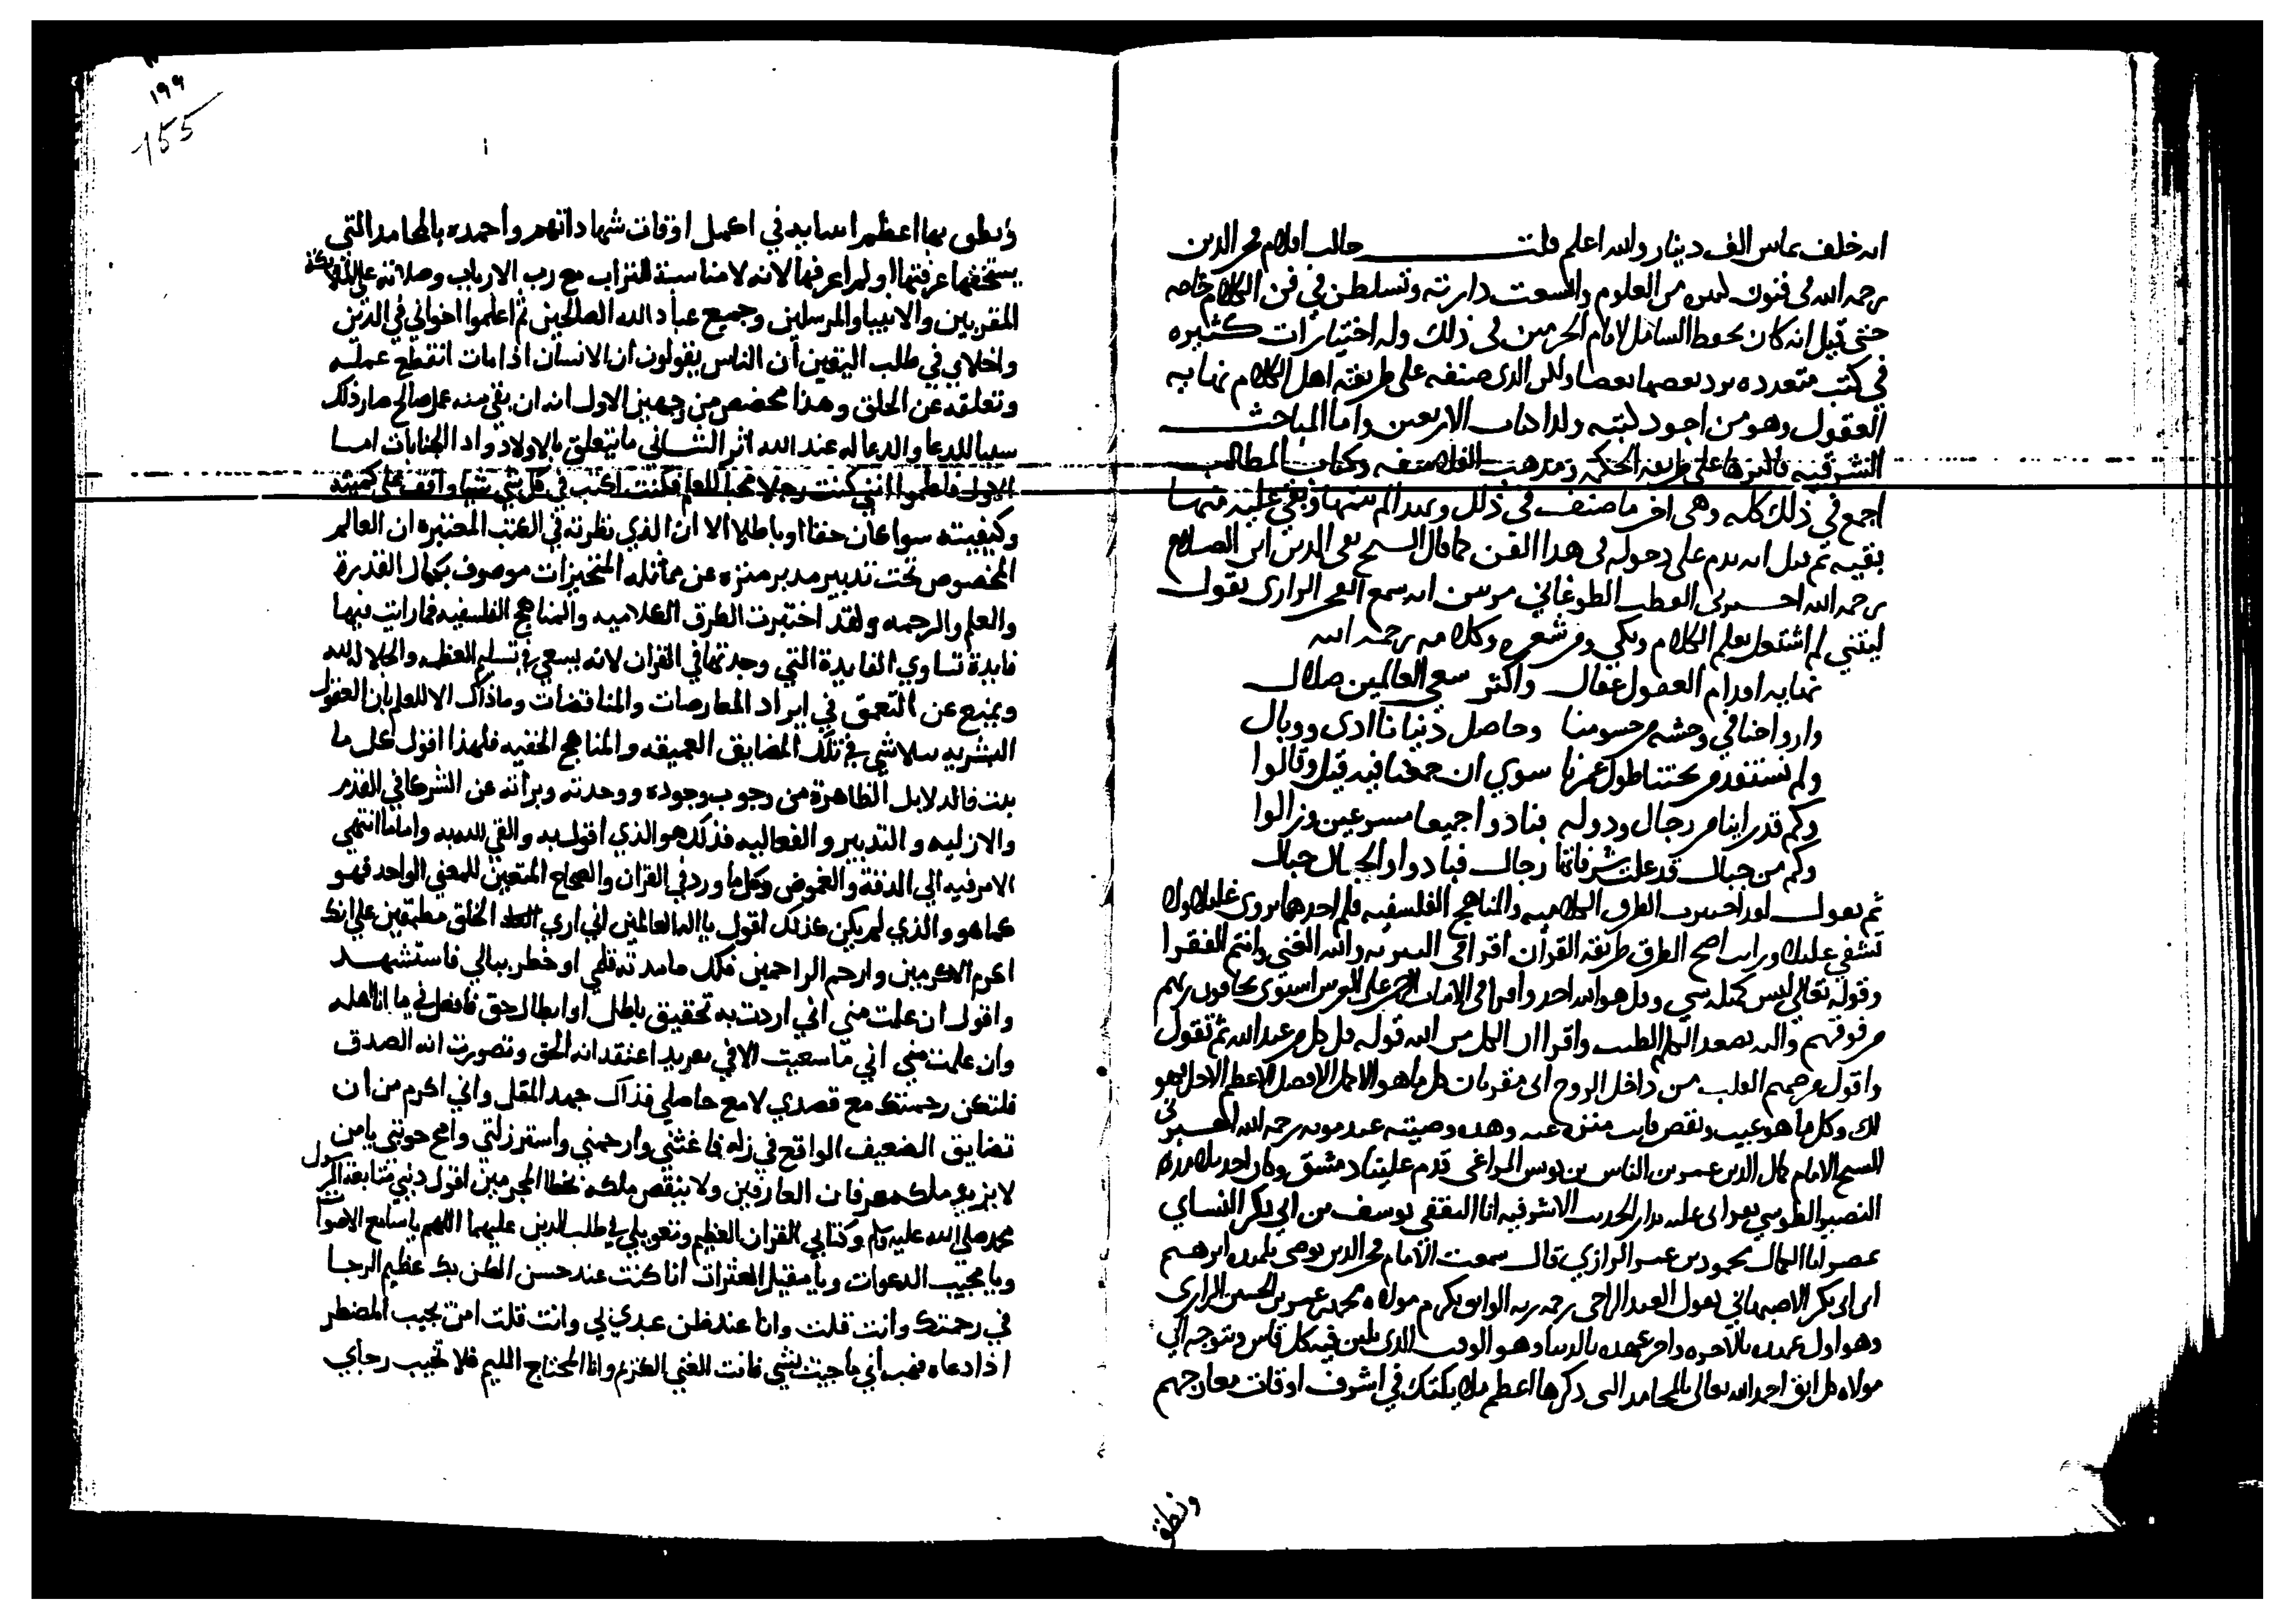 انه خلف ثمانين الف دينار والله اعلم قلت جالب الامام فخر الدين
رحمه الله في فنون كثيره من العلوم واتسعت دايرته وتسلطن في فن الكلام خاصه
حتى قيل انه كان يحفظ الشامل لامام الحرمين في ذلك وله اختيارات كثيره
في كتب متعدده يرد بعضها بعضا والذي صنفه على طريقة اهل الكلام نهايه
العقول وهو من اجود كتبه وكذا كتاب الاربعين واما المباحث
الشرقيه فاكثرها على طريقة الحكمه ومذهب الفلاسفه وكتاب المطالب
اجمع في ذلك كله وهي اخر ما صنف في ذلك ولم يتمها وبقي عليه منها
بقيه ثم قيل انه ندم على دخوله في هذا الفن كما قال الشيخ تقي الدين ابن الصلاح
رحمه الله اخبرني القطب الطوغاني مرتين انه سمع الفخر الرازي يقول
ليتني لم اشتغل بعلم الكلام وبكي ومن شعره وكلامه رحمه الله
نهايه اقدام العقول عقال واكثر سعي العالمين ضلال
وارواحنا في وحشه من جسومنا وحاصل دنيانا اذى ووبال
ولم نستفد من بحثنا طول عمرنا سوي ان جمعنا فيه قيل وقالوا
وكم قد راينا من رجال ودوله فبادوا جميعا مسرعين وزالوا
وكم من جبال قد علت شرفاتها رجال فبادوا والجبال جبال
ثم يقول لقد اختبرت الطرق الكلاميه والمناهج الفلسفيه فلم اجدها تروي غليلا ولا
تشفي عليلا ورايت اصح الطرق طريقة القرآن اقرا في التنزيه والله الغني وانتم الفقرا
وقوله تعالي ليس كمثله شي وقل هو الله احد واقرا في الاثبات الرحمن على العرش استوى يخافون ربهم
من فوقهم واليه يصعد الكلم الطيب واقرا ان الكل من الله قوله قل كل من عند الله ثم تقول
واقول من صميم القلب من داخل الروح اني مقر بان كل ما هو الاكمل الافضل الاعظم الاجل فهو
لك وكل ما هو عيب ونقص فانت منزه عنه وهذه وصيته عند موته رحمه الله اخبرني
الشيخ الامام كمال الدين عمر بن الياس بن يونس المراغي قدم علينا دمشق وكان احد تلامذه
النصير الطوسي بقراتي عليه بدار الحديث الاشرفيه انا التقي يوسف بن ابي بكر النساي
بمصر انا الكمال محمود بن عمر الرازي قال سمعت الامام فخر الدين يوصي تلميذه ابرهيم
ابن ابي بكر الاصبهاني يقول العبد الراجي رحمه ربه الواثق بكرم مولاه محمد بن عمر بن الحسن الرازي
وهو اول عهده بالاخره واخر عهده بالدنيا وهو الوقت الذي يلين فيه كل قاس ويتوجه الى
مولاه كل ابق احمد الله تعالى بالمحامد التي ذكرها اعظم ملايكتك في اشرف اوقات معارجهم
ونطق
١٩٩
155
ونطق بها اعظم انبيايه في اكمل اوقات شهاداتهم واحمده بالمحامد التي
يستحقها عرفتها او لم اعرفها لانه لا مناسبة للتراب مع رب الارباب وصلاته على الملايكة
المقربين والانبيا والمرسلين وجميع عباد الله الصالحين ثم اعلموا اخواني في الدين
واخلاي في طلب اليقين ان الناس يقولون ان الانسان اذا مات انقطع عمله
وتعلقه عن الخلق وهذا مخصص من وجهين الاول انه ان بقي منه عمل صالح صار ذلك
سببا للدعا والدعا له عند الله اثر الثاني ما يتعلق بالاولاد واد الجنايات اما
الاول فاعلموا انني كنت رجلا محبا للعلم فكنت اكتب في كل شي شيا واقف على كميته
وكيفيته سوا كان حقا او باطلا الا ان الذي نظرته في الكتب المعتبره ان العالم
المخصوص تحت تدبير مدبر منزه عن مماثله المتحيزات موصوف بكمال القدرة
والعلم والرحمه ولقد اختبرت الطرق الكلاميه والمناهج الفلسفيه فما رايت فيها
فايدة تساوي الفايدة التي وجدتها في القران لانه يسعى في تسليم العظمه والجلالة لله
ويمنع عن التعمق في ايراد المعارضات والمناقضات وما ذاك الا للعلم بان العقول
البشريه تتلاشي في تلك المضايق العميقه والمناهج الخفيه فلهذا اقول كل ما
ثبت بالدلايل الظاهرة من وجوب وجوده ووحدته وبراته عن الشركا في القدم
والازليه والتدبير والفعاليه فذلك هو الذي اقول به والقي الله به واما ما انتهى
الامر فيه الى الدقة والغموض وكل ما ورد في القران والصحاح المتعين للمعني الواحد فهو
كما هو والذي لم يكن كذلك اقول يا اله العالمين اني اري الخلق مطبقين على انك
اكرم الاكرمين وارحم الراحمين فكل ما مد به قلمي او خطر ببالي فاستشهد
واقول ان علمت مني اني اردت به تحقيق باطل او ابطال حق فافعل بي ما انا اهله
وان علمت مني اني ما سعيت الا في تقريد اعتقد انه الحق وتصورت انه الصدق
فلتكن رحمتك مع قصدي لا مع حاصلي فذاك جهد المقل واني اكرم من ان
تضايق الضعيف الواقع في زله فاغثني وارحمني واستر زلتي وامح حوبتي يا من
لا يزيد ملكه عرفان العارفين ولا ينقص ملكه بخطا المجرمين اقول ديني متابعة الرسول
محمد صلى الله عليه وسلم وكتابي القران العظيم وتعويلي في طلب الدين عليهما اللهم يا سامع الاصوات
ويا مجيب الدعوات ويا مقيل العثرات انا كنت عند حسن الظن بك عظيم الرجا
في رحمتك وانت قلت وانا عند ظن عبدي بي وانت قلت امن يجيب المضطر
اذا دعاه فهب اني ما جيت بشي فانت الغني الكريم وانا المحتاج اللئيم فلا تخيب رجاي